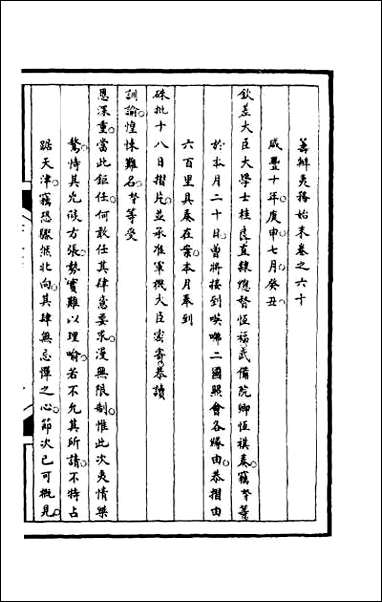 籌辦夷務始末卷之六十
咸豐十年庚申七月癸丑
欽差大臣大學士桂良直隸總督恆福武備院卿恆祺奏竊努等
於本月二十日曾將接到㖟咈二國照會各緣由恭摺由
六百里具奏在案本月奉到
硃批十八日摺片並承准軍機大臣密寄恭讀
訓諭惶悚難名努等受
恩深重當此鉅任何敢任其肆意要求漫無限制惟此次夷情桀
驁恃其兇燄方張勢實難以理喻若不允其所請不特占
踞天津竊恐驟然北向其肆無忌憚之心節次已可概見